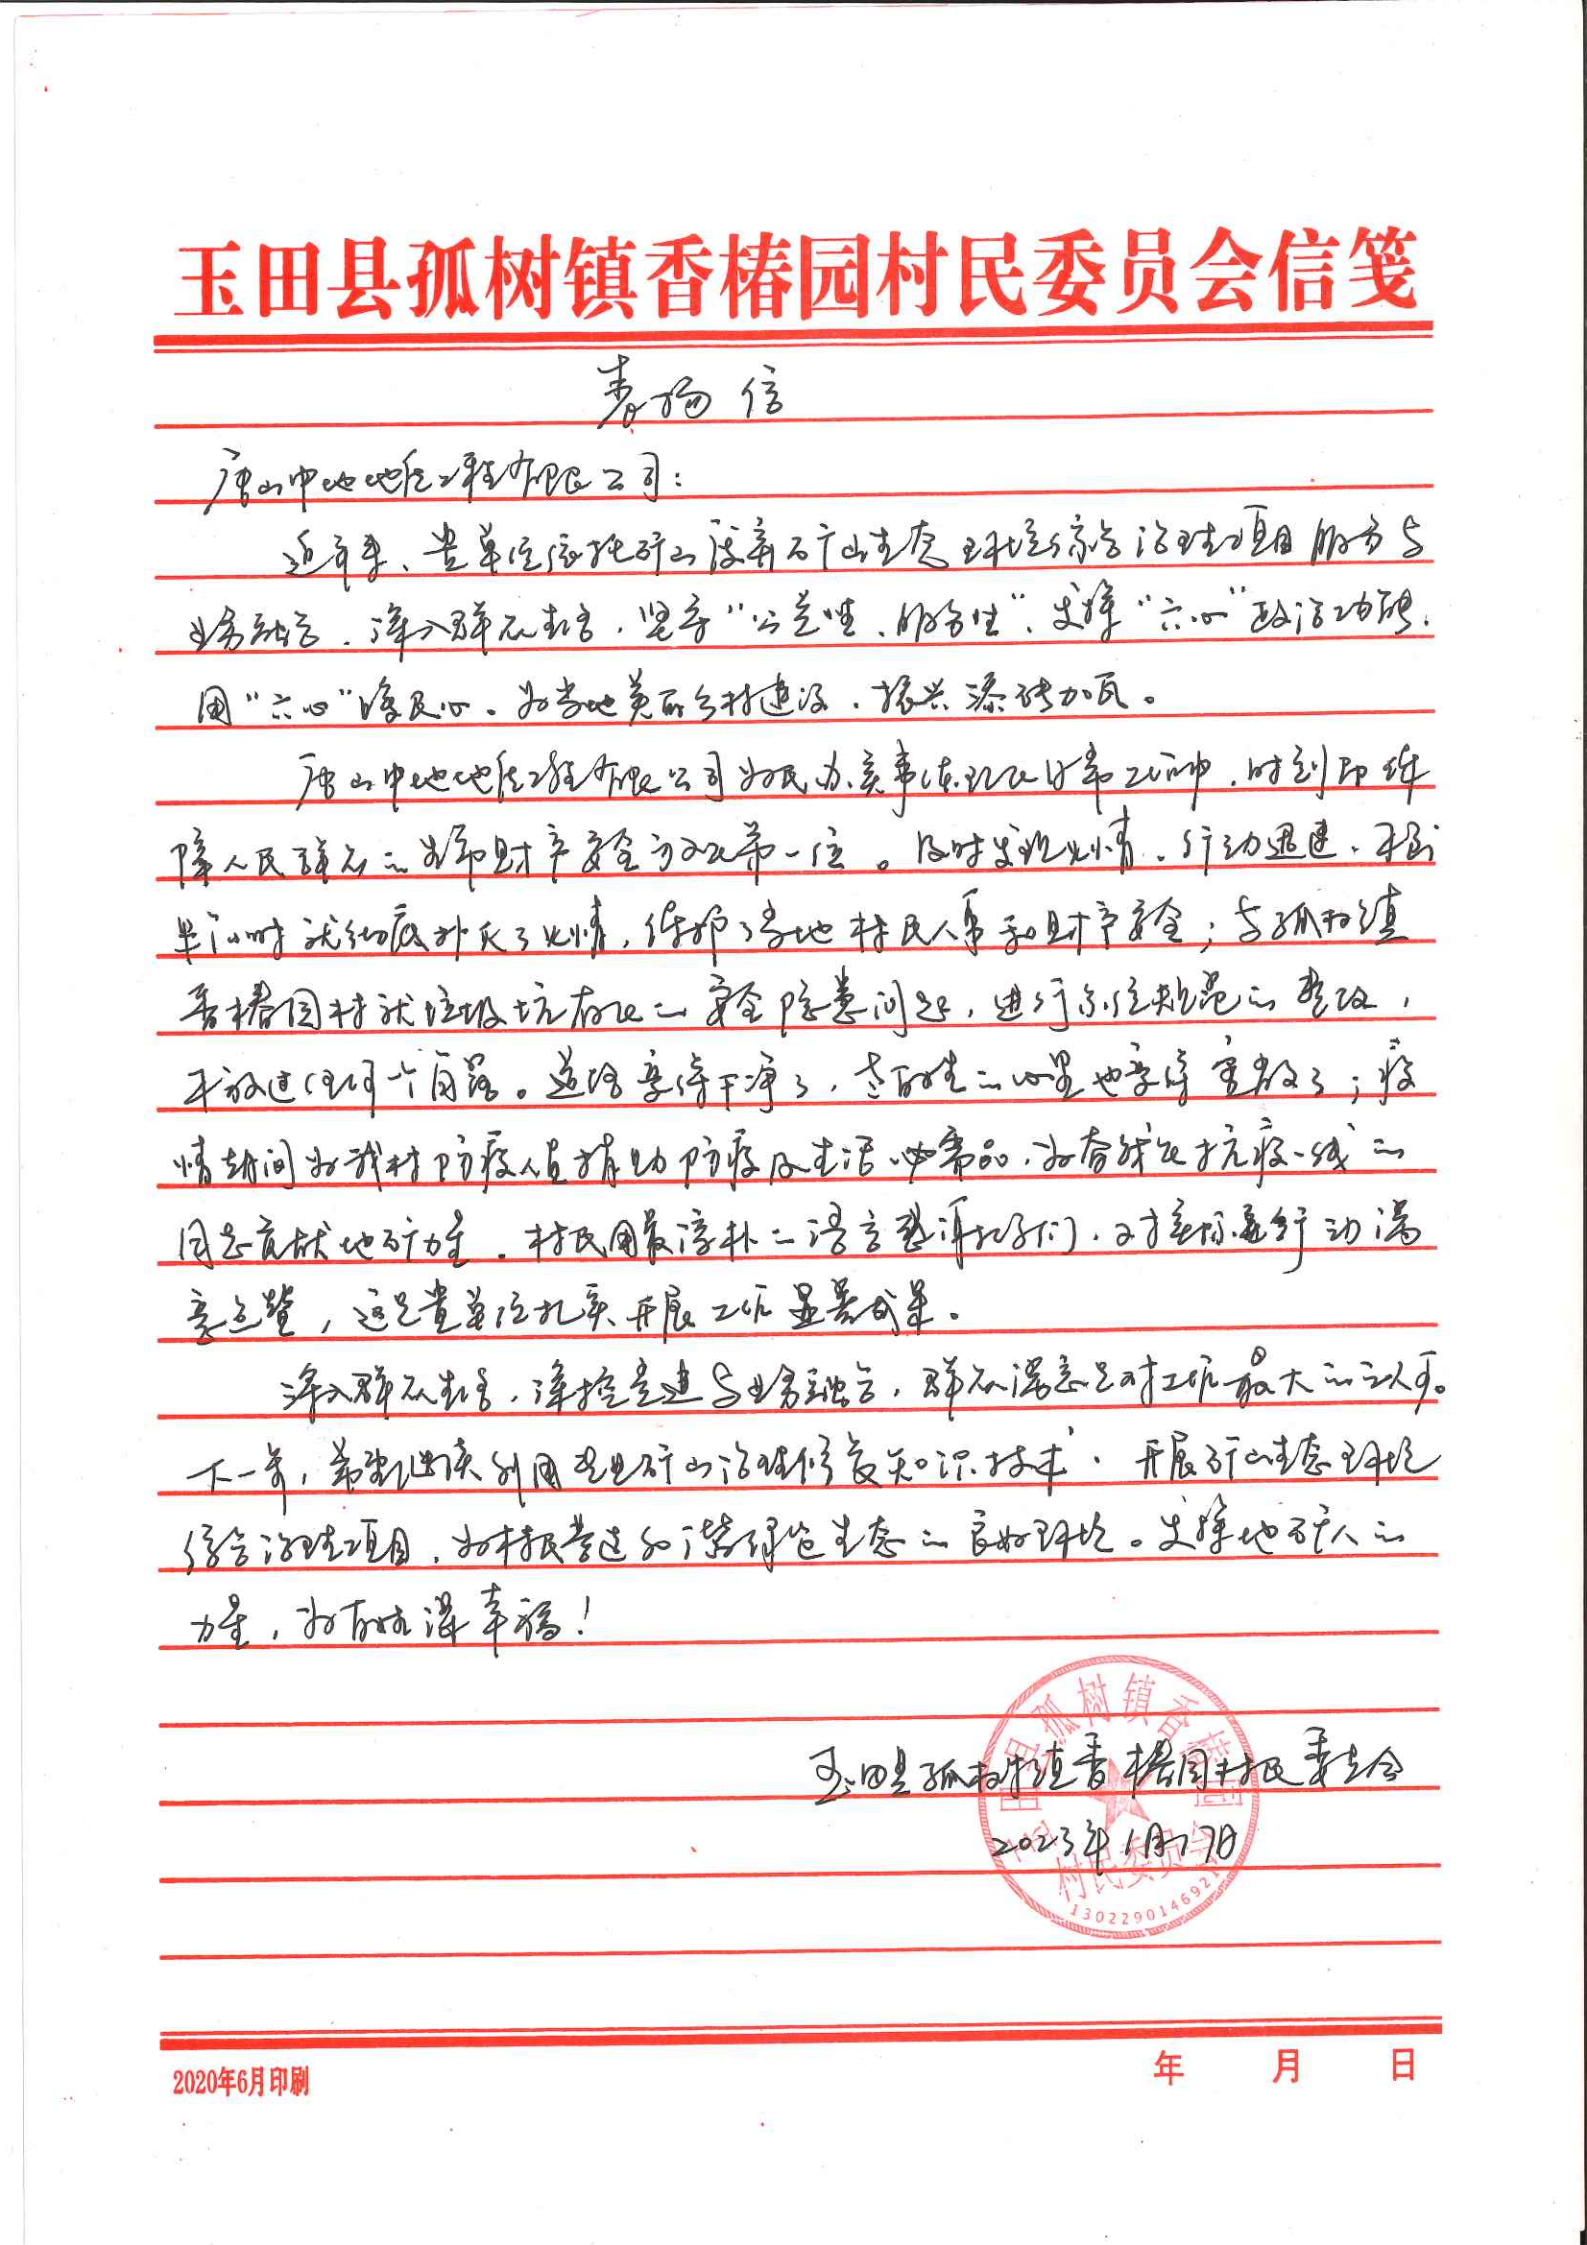 玉田县孤树镇香椿园村民委员会信笺
表扬信
唐山中地地质工程有限公司：
近年来、贵单位依托矿山废弃矿山生态环境综合治理项目服务与
业务融合，深入群众生活，坚守“公益性、服务性”，发挥“六心”政治功能，
用“六心”暖民心。为当地美丽乡村建设，振兴添砖加瓦。
唐山中地地质工程有限公司为民办实事体现在日常工作中，时刻即保
障人民群众的生命财产安全放在第一位。及时发现火情，行动迅速，不到
半个小时就彻底扑灭了火情，保护了当地村民人身和财产安全；与孤树镇
香椿园村就垃圾坑存在的安全隐患问题，进行全位规范的整改，
不放过任何一个角落。道路变得干净了，老百姓的心里也变得宽敞了；疫
情期间为我村防疫人员捐助防疫及生活必需品，为奋战在抗疫一线的
同志贡献地矿力量。村民用最淳朴的语言 ，对 行动满
意点赞，这是贵单位扎实开展工作显著成果。
深入群众生活，深挖党建与业务融合，群众满意是对工作最大的认可。
下一步，希望继续利用专业矿山治理修复知识技术，开展矿山生态环境
综合治理项目，为村民营造和谐绿色生态的良好环境。发挥地矿人的
力量，为百姓谋幸福！
玉田县孤树镇香椿园村民委员会
2023年1月17日
玉田县孤树镇香椿园
村民委员会
2020年6月印刷
年 月 日